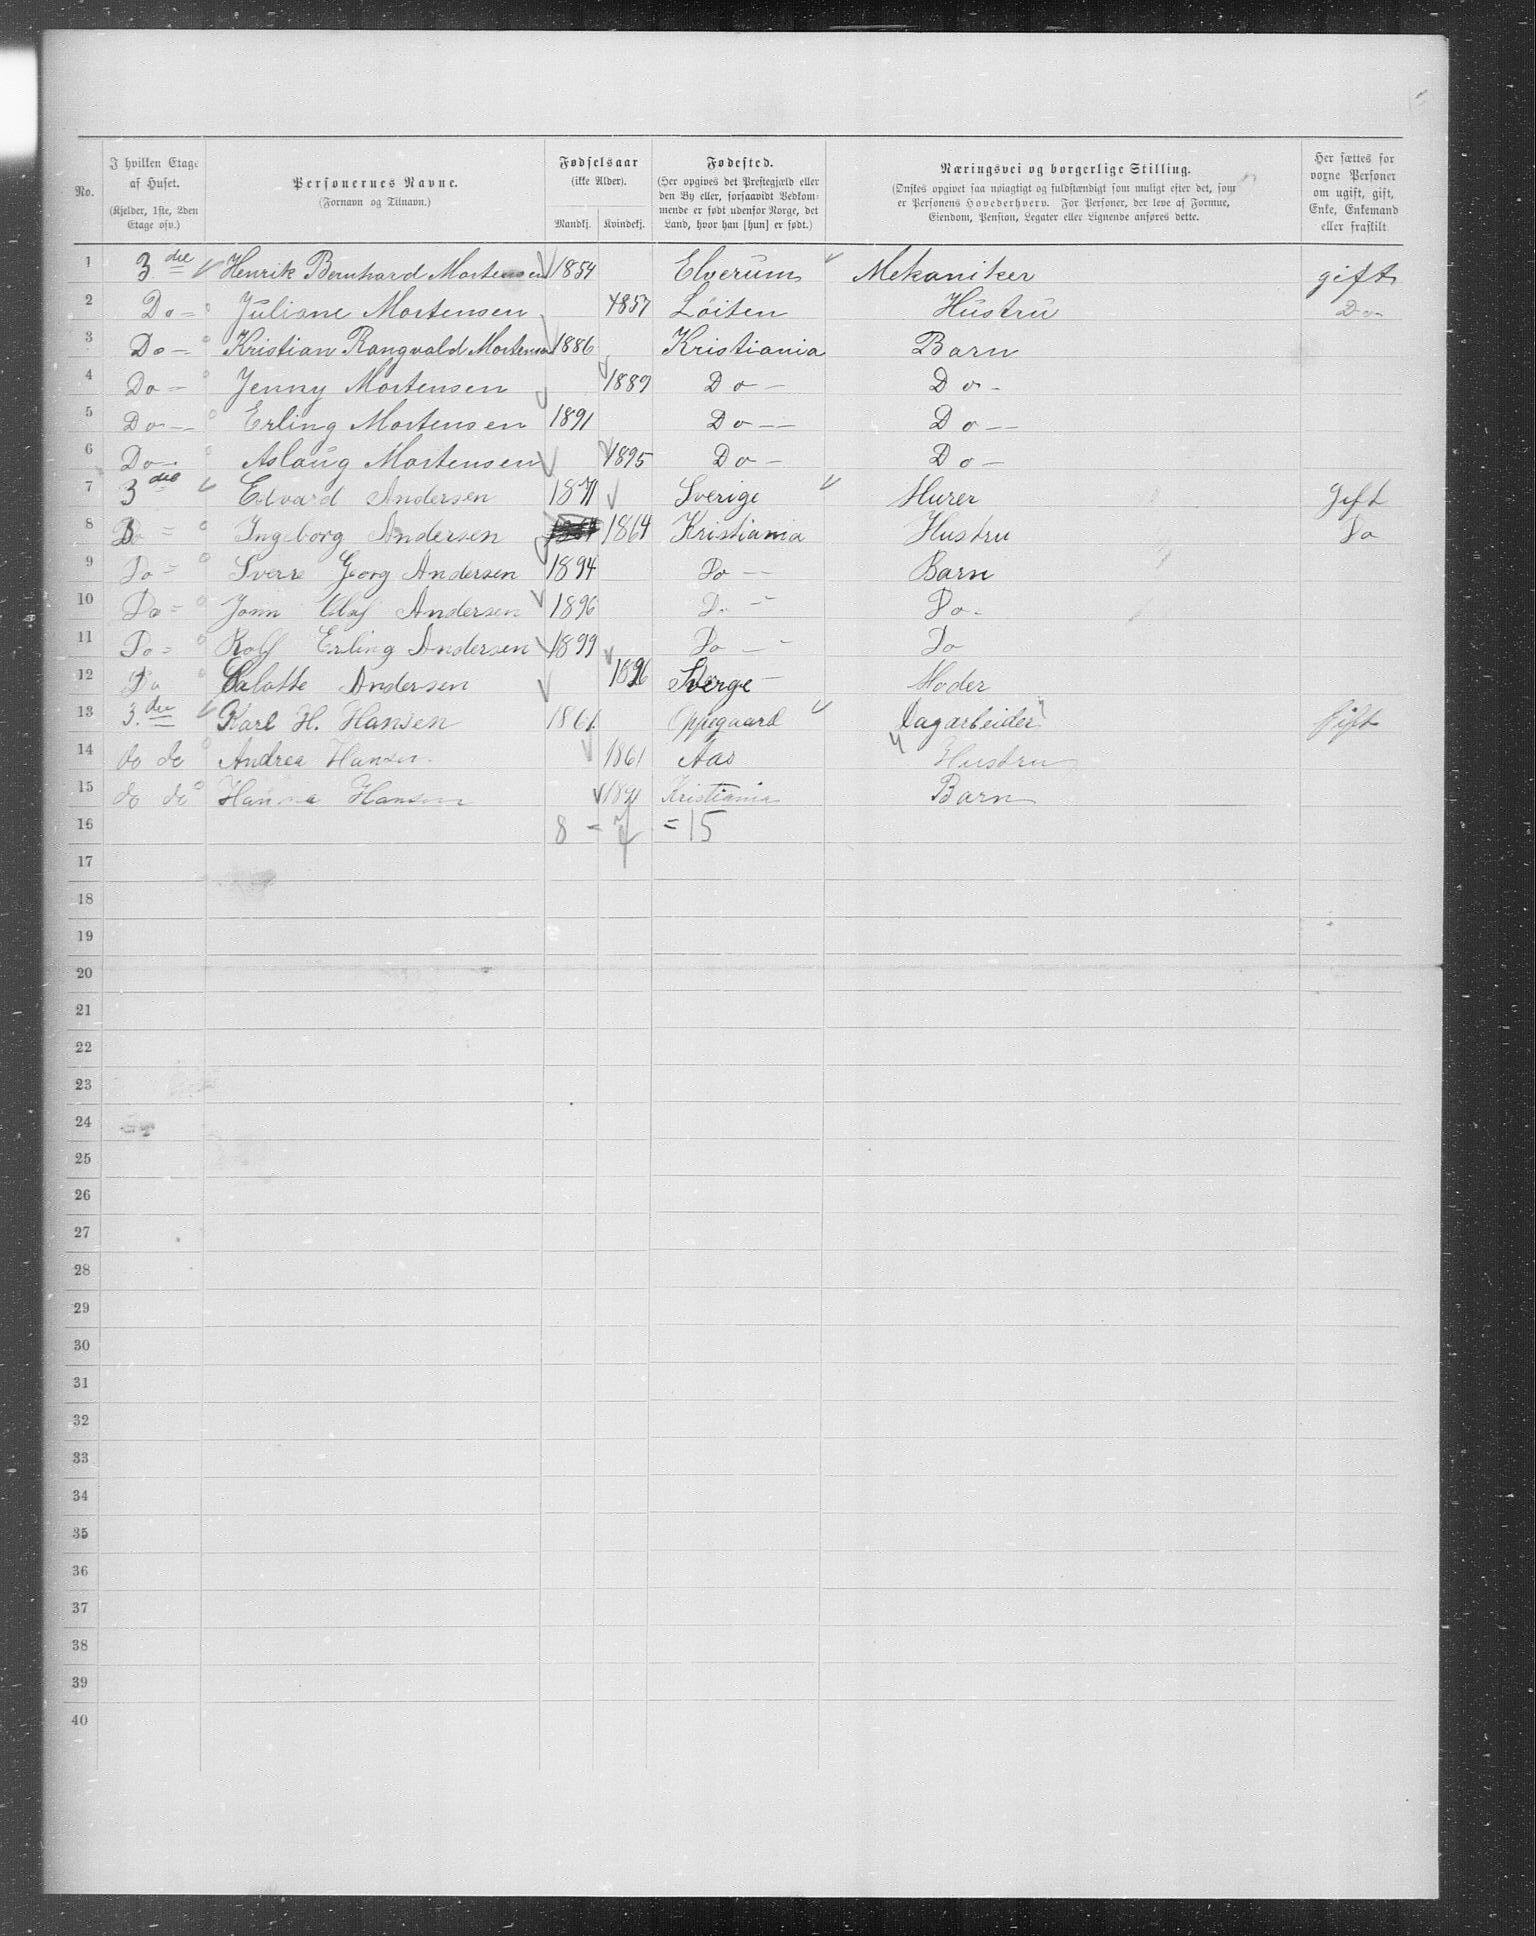 No.
I hvilken Etage af Huset. (Kjelder, 1ste, 2den Etage osv.)
Personernes Navne. (Fornavn og Tilnavn.)
Fødselsaar (ikke Alder). Mandkj. Kvindekj.
Fødested. (Her opgives det Prestegjæld eller den By eller, forsaavidt Vedkommende er født udenfor Norge, det Land, hvor han [hun] er født.)
Næringsvei og borgerlige Stilling. (Ønskes opgivet saa nøiagtigt og fuldstændigt som muligt efter det, som er Personens Hovederhverv. For Personer, der leve af Formue, Eiendom, Pension, Legater eller Lignende anføres dette.
Her sættes for voxne Personer om ugift, gift, Enke, Enkemand eller fraskilt
1 3die Henrik Bernhard Mortensen 1854 Elverum Mekaniker gift
2 Do Juliane Mortensen 1857 Löiten Hustru Do
3 Do Kristian Rangvald Mortensen 1886 Kristiania Barn
4 Do Jenny Mortensen 1889 Do Do
5 Do Erling Mortensen 1891 Do Do
6 Do Aslaug Mortensen 1895 Do Do
7 3die Edvard Andersen 1871 Sverige Murer Gift
8 Do Ingeborg Andersen 1864 Kristiania Hustru Do
9 Do Sverre Georg Andersen 1894 Do Barn
10 Do John Olaf Andersen 1896 Do Do
11 Do Rolf Erling Andersen 1899 Do Do
12 Do Andersen Sverge Moder
13 3.die Karl H. Hansen 1861 Oppegaard Dagarbeider Gift
14 do do Andrea Hansen 1861 Aas Hustru
15 do do Hanna Hansen 1891 Kristiania Barn
16 8 = 7 = 15
17
18
19
20
21
22
23
24
25
26
27
28
29
30
31
32
33
34
35
36
37
38
39
40